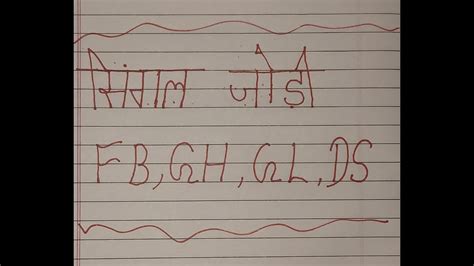 सिंगल जोडी
FB,GH,GL,DS